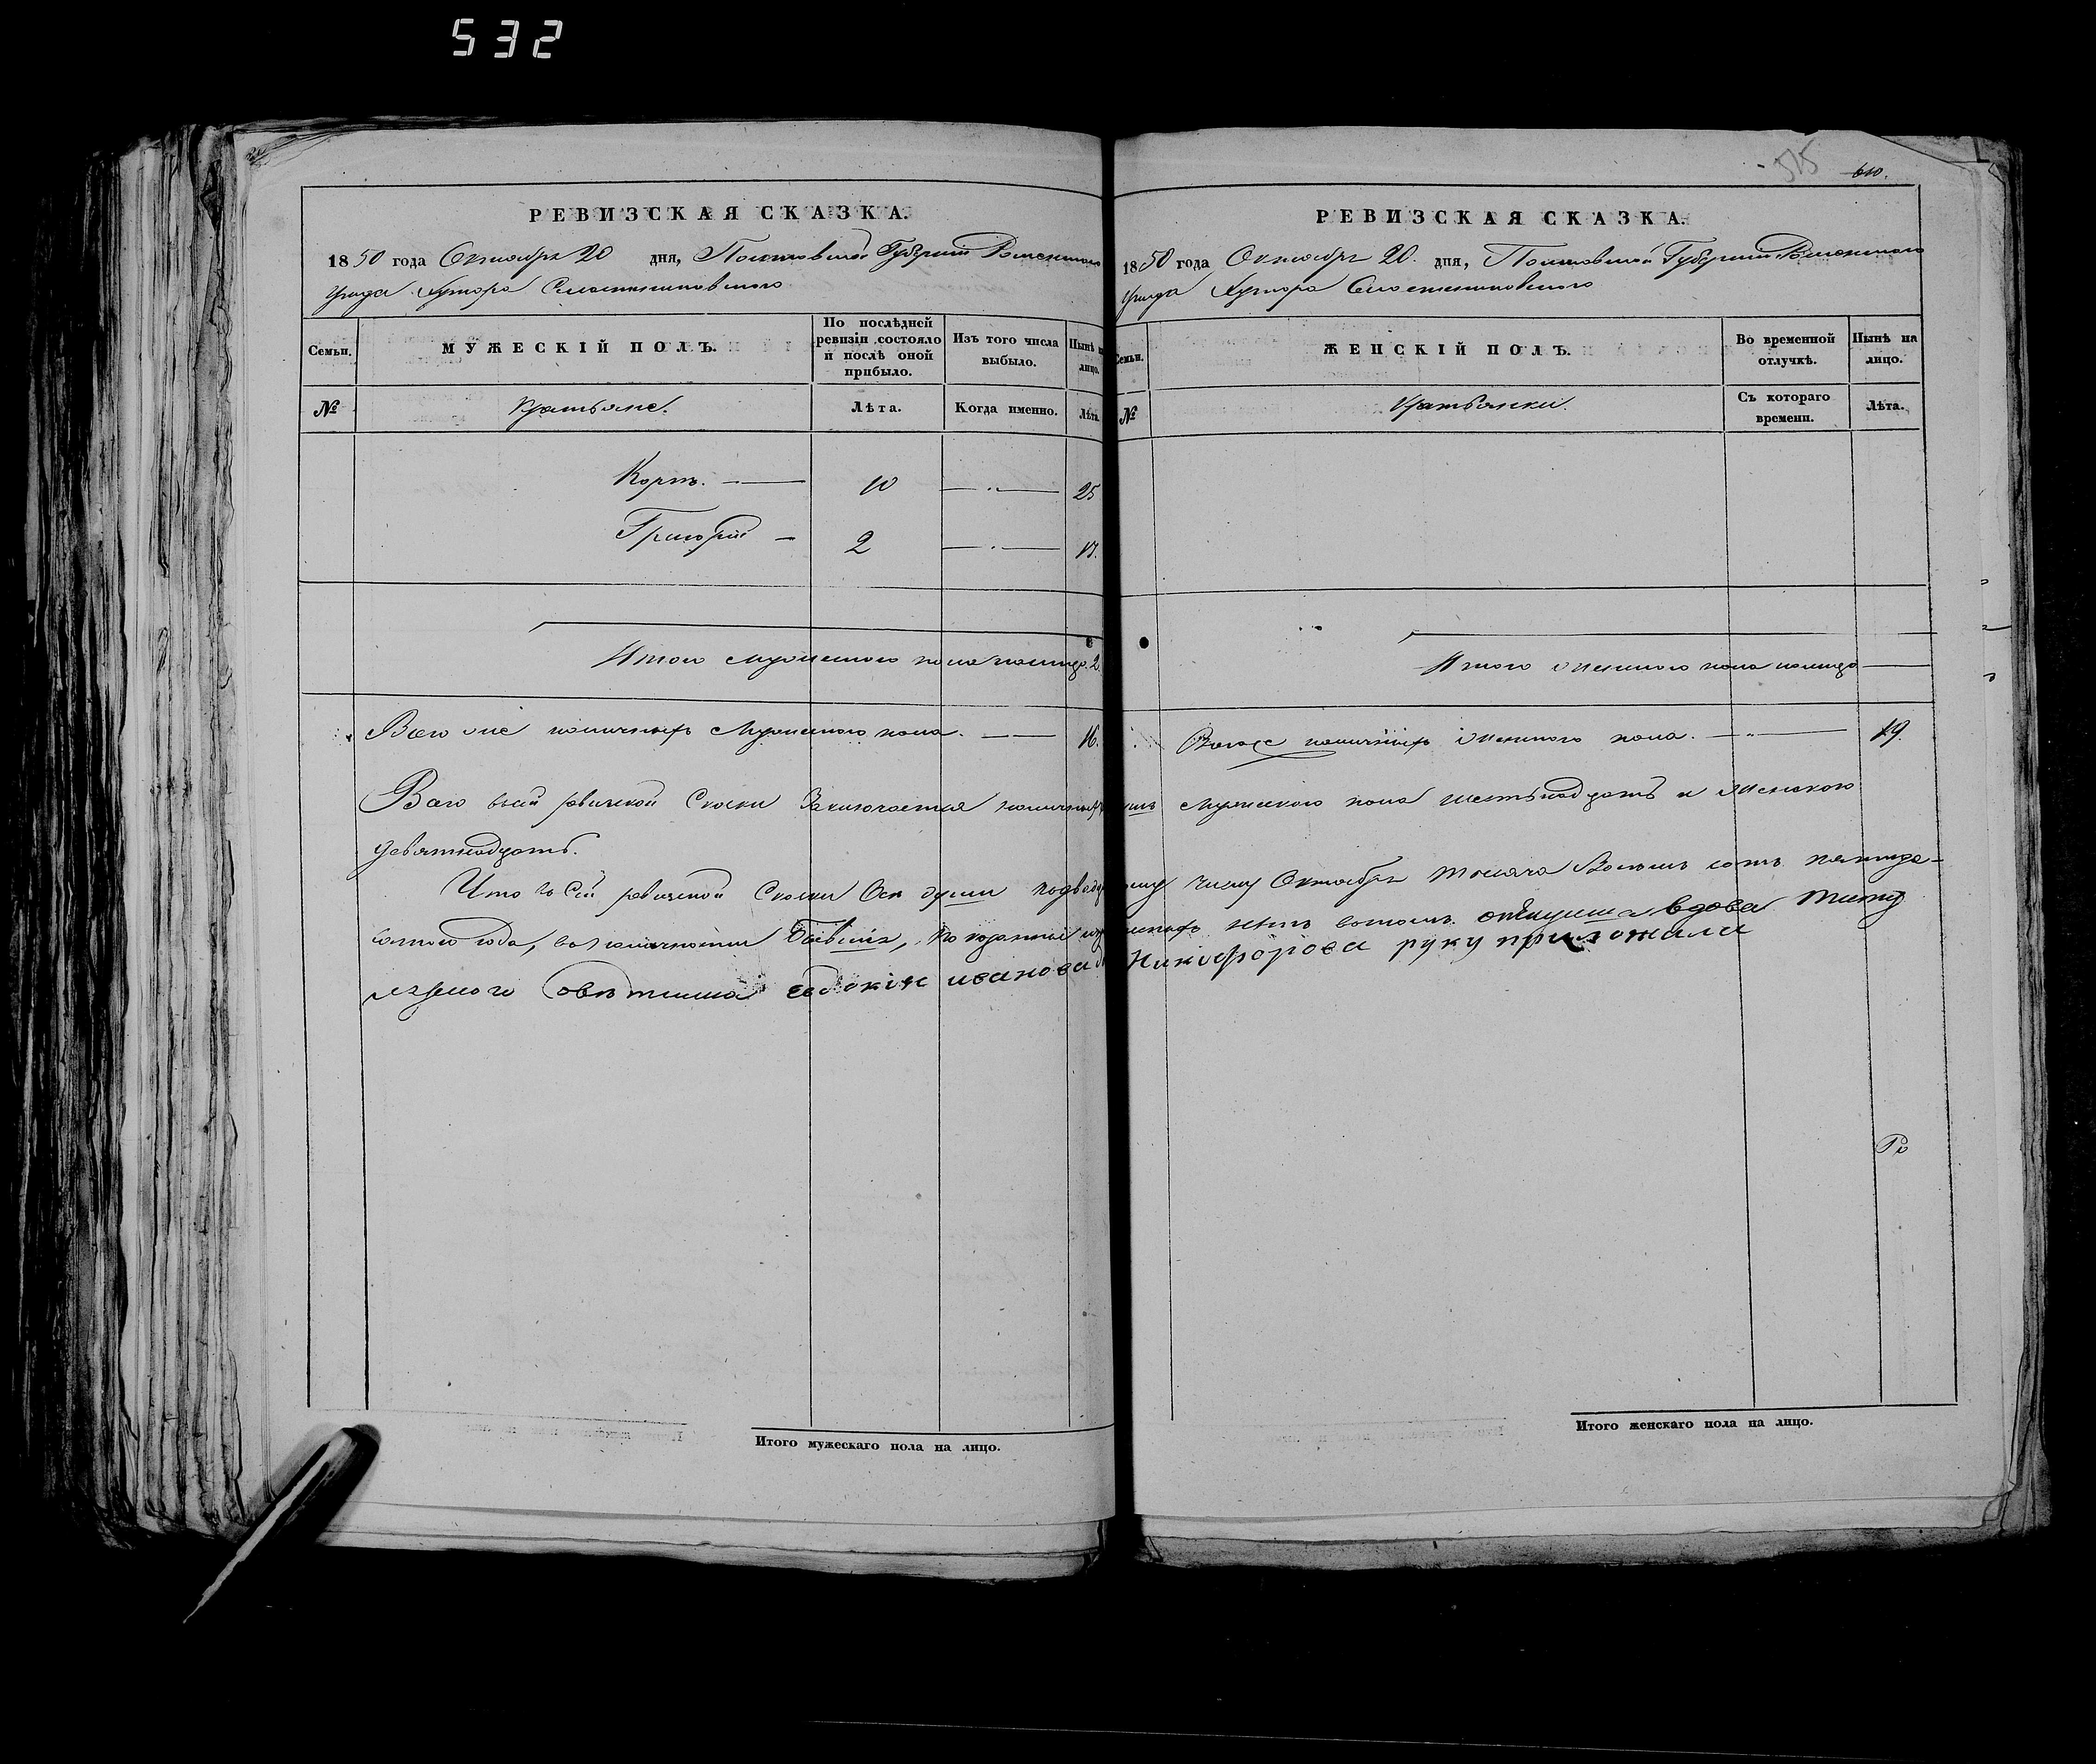 532
515
610.
РЕВИЗСКАЯ СКАЗКА.
1850 года Октября 20 дня, Полтавской Губернии Роменского
Уезда Хутора
Семьи.
МУЖЕСКІЙ ПОЛЪ.
По послѣдней ревизіи состояло и послѣ оной прибыло.
Изъ того числа выбыло.
Нынѣ на лицо.
№
Крестьяне.
Лѣта.
Когда именно.
Лѣта.
10 25
Григорій 2 17.
Итого мужеского пола налицо. 2
Всего же наличныхъ Мужеского пола. 16.
РЕВИЗСКАЯ СКАЗКА.
1850 года Октября 20. дня, Полтавской Губернии Роменского
Уезда Хутора
Семьи.
ЖЕНСКІЙ ПОЛЪ.
Во временной отлучкѣ.
Нынѣ на лицо.
№
Крестьянки.
Съ котораго времени.
Лѣта.
Итого женского пола налицо
Всего же наличныхъ женского пола. 19.
Всего в сей ревизской Сказки Заключается наличныхъ душъ мужеского пола шестьнадцать и женского
девятнадцать.
Что в Сей ревизской Сказки Все души числу Октября тысяча Восемь сотъ пятиде-
сятого года, в наличности Бывшія, показанные нетъ в томъ вдова титу
лярного Советника евдокия иванова Никифорова руку приложила
Итого мужескаго пола на лицо.
Итого женскаго пола на лицо.